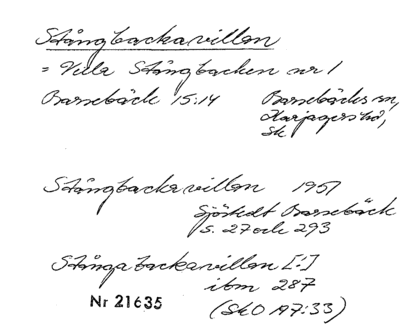 Stångbackavillan
= Villa Stångbacken nr 1
Barsebäck 15:14 Barsebäcks sn,
Harjagers hd,
Sk
Stångbackavillan 1957
Sjöstedt Barsebäck
s. 27 och 293
Stångabackavillan [:]
ibm 287
Nr 21635 (SkO A7:33)